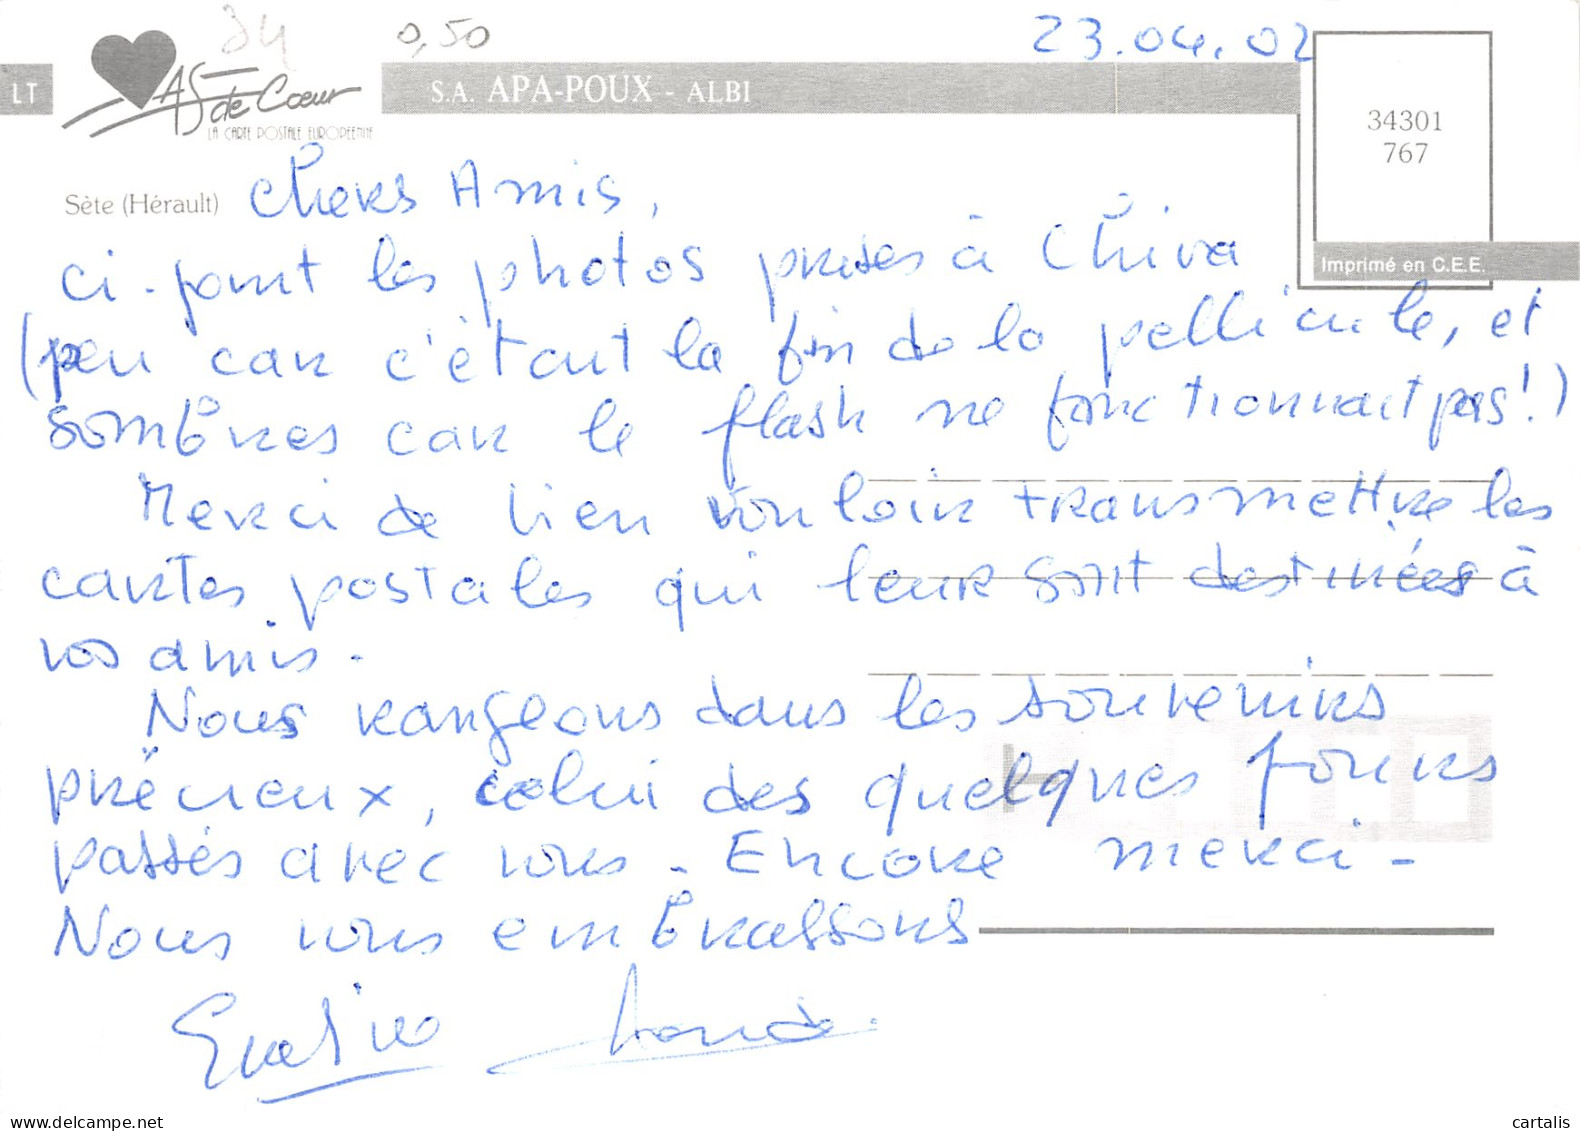 34
0,50
23.04.02
LT
AS de Cœur
LA CARTE POSTALE EUROPÉENNE
S.A. APA-POUX - ALBI
34301
767
Imprimé en C.E.E.
Sète (Hérault)
Chers Amis,
ci-joint les photos prises à Chiva
(peu car c'était la fin de la pellicule, et
sombres car le flash ne fonctionnait pas!)
Merci de bien vouloir transmettre les
cartes postales qui leur sont destinées à
vos amis.
Nous rangeons dans les souvenirs
précieux, celui des quelques jours
passés avec vous. Encore merci-
Nous vous embrassons
delcampe.net
cartalis